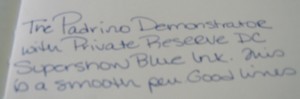 The Padrino Demonstrator
with Private Reserve DC
Supershow Blue Ink. This
is a smooth pen Good lines